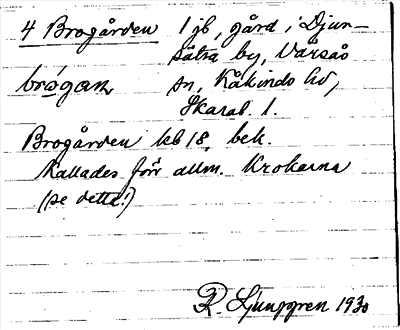 4 Brogården 1 jb, gård i Djur-
sätra by, Värsås
brógan sn, Kåkinds hd,
Skarab. l.
Brogården kb 18, bek.
Kallades förr allm. Krokarna
(se detta!)
R. Ljunggren 1930